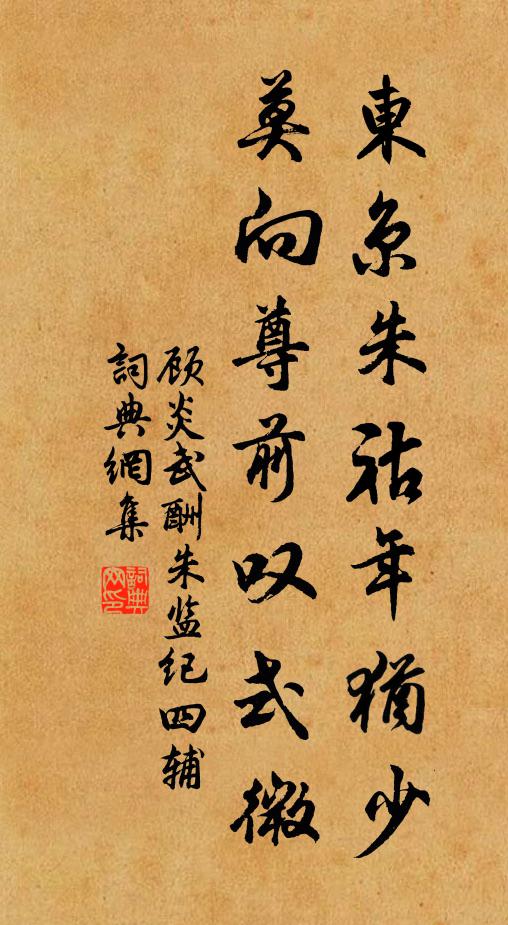 東京朱祜年猶少
莫向尊前叹式微
顾炎武酬朱监纪四辅
詞典網集
詞典網印